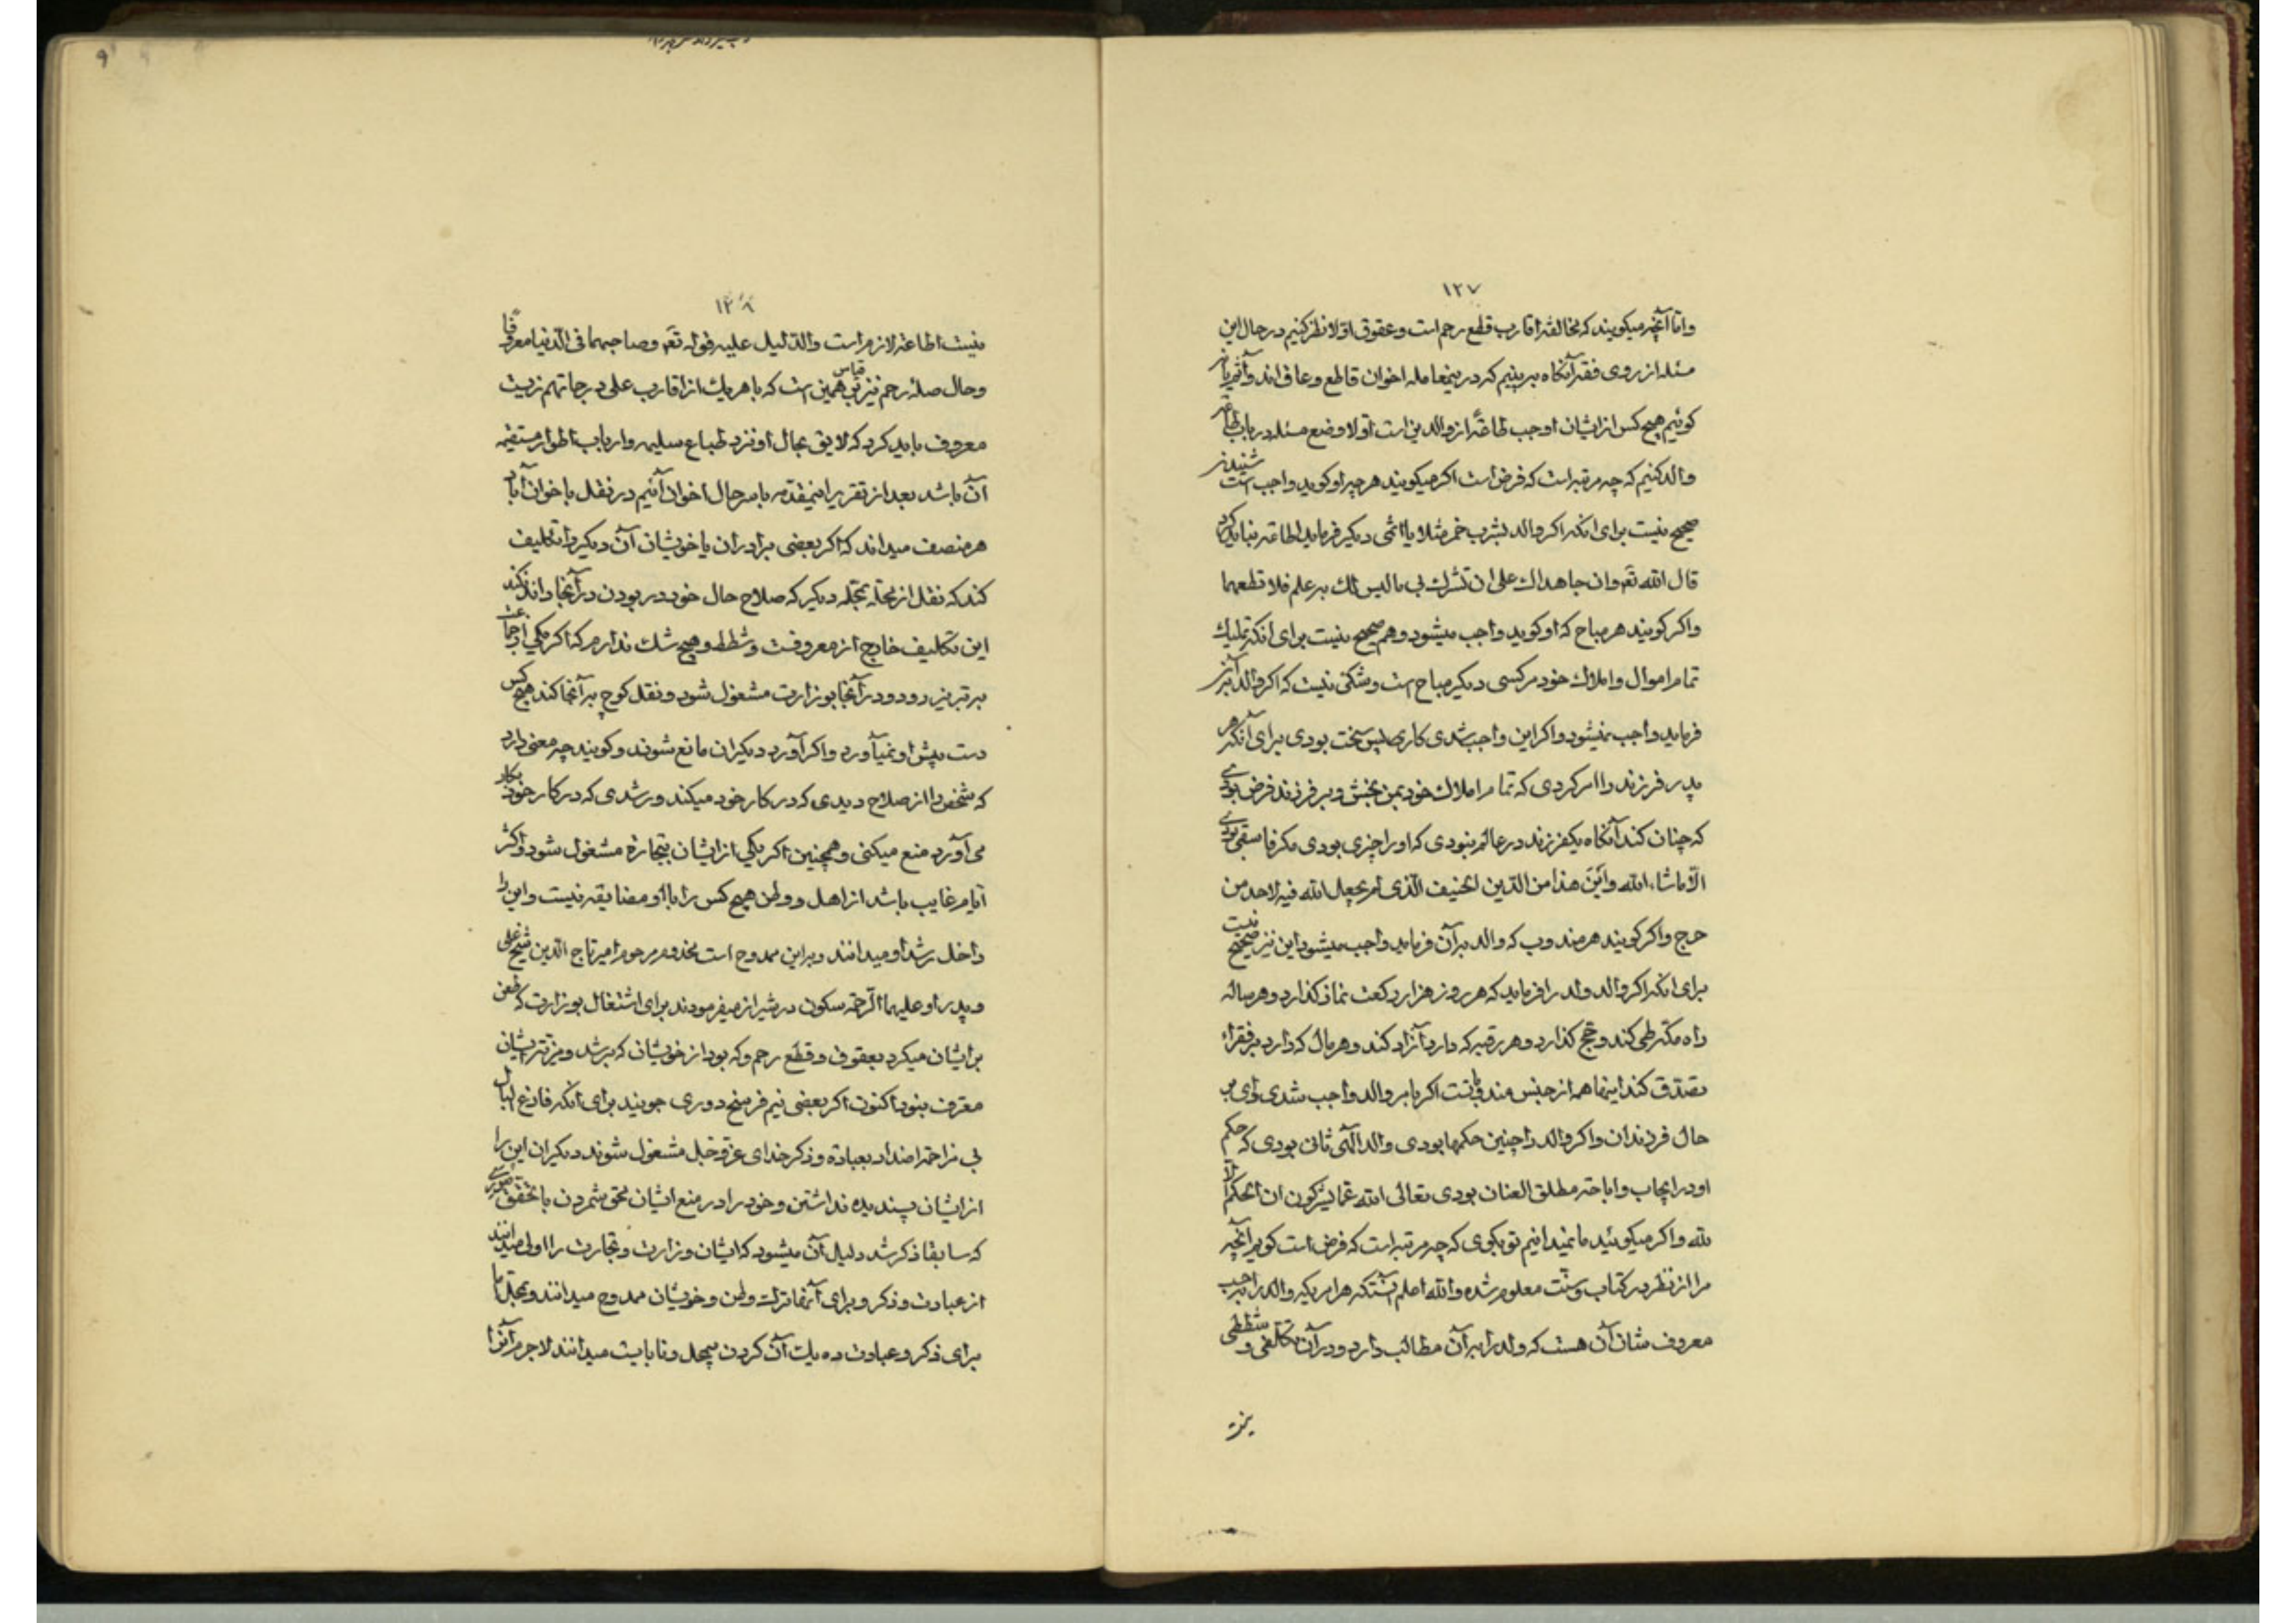 ۱۲۷
و اما آنچه میکویند که مخالفة اقارب قطع رحم است و عقوق اولا نظر کنیم در حال این
مسئله از روی فقه آنکاه ببینیم که در بنمعامله اخوان قاطع و عاق اند و آنفریا نه
کوئیم هیچ کس از ایشان اوجب طاعةً از والدین است اولا وضع مسئله در باب طاعة
والد کنیم که چه مرتبه است که فرض است اکر میکویند هر چه او کوید واجب است شنیدنه
صحیح نیست برای انکه اکر والد بشرب خمر مثلا یا اثمی دیکر فرماید اطاعه نباید کرد
قال الله تع وان جاهداك علی ان تشرك بی ما لیس لك به علم فلا تطعهما
واکر کویند هر مباح که او کوید واجب میشود و هم صحیح نیست برای انکه تملیك
تمام اموال و املاك خود مر کسی دیکر مباح است و شکی نیست که اکر والد آن
فرماید واجب نمیشود و اکر این واجب شدی کار بس سخت بودی برای آنکه هر
پدر فرزند را امر کردی که تمام املاك خود بمن بخش و بر فرزند فرض بودی
که چنان کند آنکاه یکفرزند در عالم نبودی که او را چیزی بودی مکر فاسقی بودی
الا ماشاء الله و این هذا من الدین الحنیف الذی لم یجعل الله فیه لاحد من
حرج و اکر کویند هر مندوب که والد بر آن فرماید واجب میشود این نیز صحیح نیست
برای انکه اکر والد ولد را فرماید که هر روز هزار رکعت نماز کذارد و هر ساله
راه مکه طی کند و حج کذارد و هر رقبه که دارد آزاد کند و هر مال که دارد بر فقراء
تصدق کند اینها همه از جنس مندوباتست اکر بامر والد واجب شدی وای بر
حال فرزندان و اکر والد را چنین حکمها بودی والد الهی ثانی بودی که حکم
او در ایجاب و اباحة مطلق العنان بودی تعالی الله عما یشرکون ان الحکم الا
لله و اکر میکوئید ما نمیدانیم تو بکوی که چه مرتبه است که فرض است کویم آنچه
مرا از نظر در کتاب و سنت معلوم شده و الله اعلم آنستکه هر امریکه والد را بر
معروف شان آن هست که ولد را بر آن مطالب دارد و در آن تکلفی و شططی
نیست
۱۲۸
نیست اطاعة لازم است والدلیل علیه قوله تع وصاحبهما فی الدنیا معروفا
و حال صلهٔ رحم نیز بر همین قیاس است که با هر یك از اقارب علی درجاتهم زیست
معروف باید کرد که لایق بحال او نزد طباع سلیمه و ارباب اطوار مستقیمه
آن باشد بعد از تقریر اینمقدمه بامر حال اخوان آئیم در نقل باخوان آباد
هر منصف میداند که اکر بعضی برادران یا خویشان آن دیکر را تکلیف
کند که نقل از محله بمحله دیکر که صلاح حال خود در بودن در آنجا داند نکند
این تکلیف خارج از معروفست و شطط و هیچ شك ندارم که اکر یکی از جماعت
به تبریز رود و در آنجا بوزارت مشغول شود و نقل کوچ به آنجا کند هیچ کس
دست پیش او نمیآورد و اکر آورد دیکران مانع شوند و کویند چه معنی دارد
که شخص را از صلاح دیدی که در کار خود میکند و رشدی که در کار خود بکار
می آورد منع میکنی و همچنین اکر یکی از ایشان بتجارة مشغول شود و اکثر
ایام غایب باشد از اهل و وطن هیچ کس را با او مضایقه نیست و این را
داخل رشد او میدانند و بر این ممدوح است مخدوم مرحوم امیر تاج الدین شیخ علی
و پدر او علیهما الرحمة سکون در شیراز میفرمودند برای اشتغال بوزارت که
بر ایشان میکرد بعقوق و قطع رحم و که بود از خویشان که برشد و مزیت ایشان
معترف نبود اکنون اکر بعضی نیم فرسنخ دوری جویند برای انکه فارغ البال
بی مزاحمة اضداد بعبادة و ذکر خدای عز و جل مشغول شوند دیکران این را
از ایشان پسندیده نداشتن و خود را در منع ایشان محق شمردن با تحقق
که سابقا ذکر شد دلیل آن میشود که ایشان وزارت و تجارت را اولی میدانند
از عبادت و ذکر و برای آنها ترك وطن و خویشان ممدوح میدانند و محله را
برای ذکر و عبادت ده یك آن کردن سهل و نابایست میدانند لاجرم آنرا